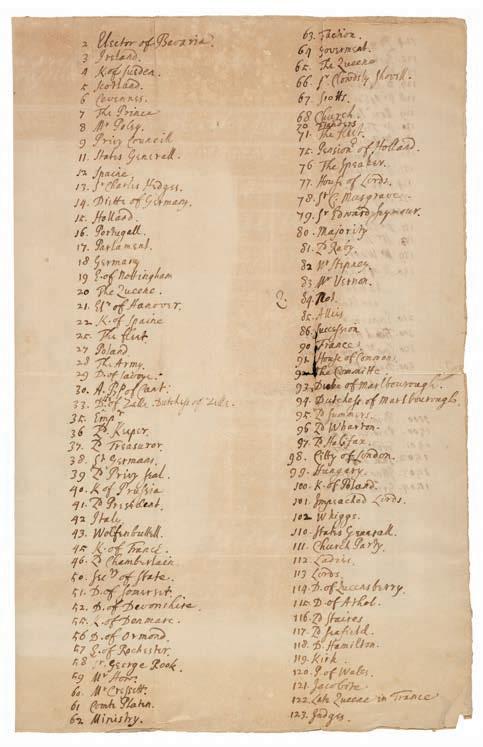 2 Elector of Bavaria.
3 Ireland.
4 K. of Sueden.
5 Scotland.
6 Cevennes.
7 The Prince
8 Mr Poley.
9 Privy Councill
11. States Generall.
12 Spaine
13. Sr Charles Hedges.
14. Diette of Germany.
15. Holland.
16. Portugall.
17. Parlament.
18 Germany
19 E. of Nottingham
20 The Queene.
21. Elr of Hanover.
22 K. of Spaine
25. The fleet
27 Poland.
28 The Army.
29 D. of Savoye.
30. A.Bp of Cant:
33. D. of Zelle. Dutchess of Zelle.
35. Empr
36 Ld Keeper.
37. Ld Treasuror.
38. St Germans.
39 Ld Privy seal.
40. K. of Prussia
41. Ld President.
42 Italy.
43. Wolfenbuttell.
45 K. of France.
46. Ld Chamberlain.
50. Secry of State.
51. D. of Somerset.
52. D. of Devonshire.
55. K. of Denmarc.
56. D. of Ormond.
57 E. of Rochester.
58 Sr. George Rook.
59 Mr How.
60 Mr Cressett.
61 Comte Platen.
62 Ministry.
63. Faction.
64 Goverment.
65. The Queene
66. Sr Clowdsly Shovell.
67. Scotts.
68 Church.
70 Flanders
71. The fleet.
75. Pensionr of Holland.
76 The Speaker.
77. House of Lords.
78. Sr C. Musgrave.
79. Sr Edward Seymour.
80. Majority
81. Ld Raby.
82 Mr Stepney
83 Mr Vernon.
84.
85. Allies
86. Succession
90 France
91. House of Commons
92 The Committe
93. Duke of Marlbourough.
94. Dutchess of Marlbourough.
95. Ld Summers.
96 Ld Wharton.
97. Ld Halifax.
98. Citty of London.
99. Hungary.
100. K. of Poland.
101. Impeached Lords.
102 Whiggs.
110. States Generall.
111. Church Party.
112. Ladies.
113 Lords.
114. D. of Queensberry.
115. D. of Athol.
116. Ld Staires
117. Ld Seafield.
118. D. Hamilton.
119. Kirk.
120. P. of Wales.
121. Jacobite.
122. Late Queene in France
123. Judges.